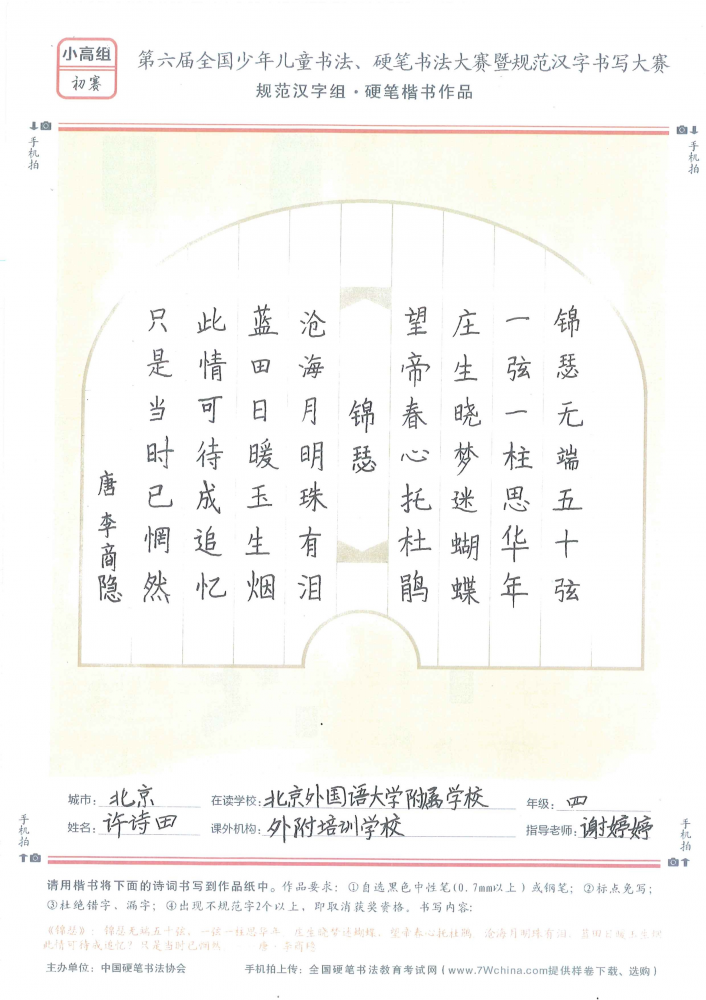 小高组
初赛
第六届全国少年儿童书法、硬笔书法大赛暨规范汉字书写大赛
规范汉字组·硬笔楷书作品
手机拍
手机拍
锦瑟无端五十弦
一弦一柱思华年
庄生晓梦迷蝴蝶
望帝春心托杜鹃
锦瑟
沧海月明珠有泪
蓝田日暖玉生烟
此情可待成追忆
只是当时已惘然
唐 李商隐
城市：北京 在读学校：北京外国语大学附属学校 年级：四
姓名：许诗田 课外机构：外附培训学校 指导老师：谢婷婷
手机拍
手机拍
请用楷书将下面的诗词书写到作品纸中。作品要求：①自选黑色中性笔(0.7mm以上)或钢笔；②标点免写；
③杜绝错字、漏字；④出现不规范字2个以上，即取消获奖资格。书写内容：
《锦瑟》：锦瑟无端五十弦，一弦一柱思华年。庄生晓梦迷蝴蝶，望帝春心托杜鹃。沧海月明珠有泪，蓝田日暖玉生烟。
此情可待成追忆？只是当时已惘然。 唐·李商隐
主办单位：中国硬笔书法协会 手机拍上传：全国硬笔书法教育考试网（www.7Wchina.com提供样卷下载、选购）